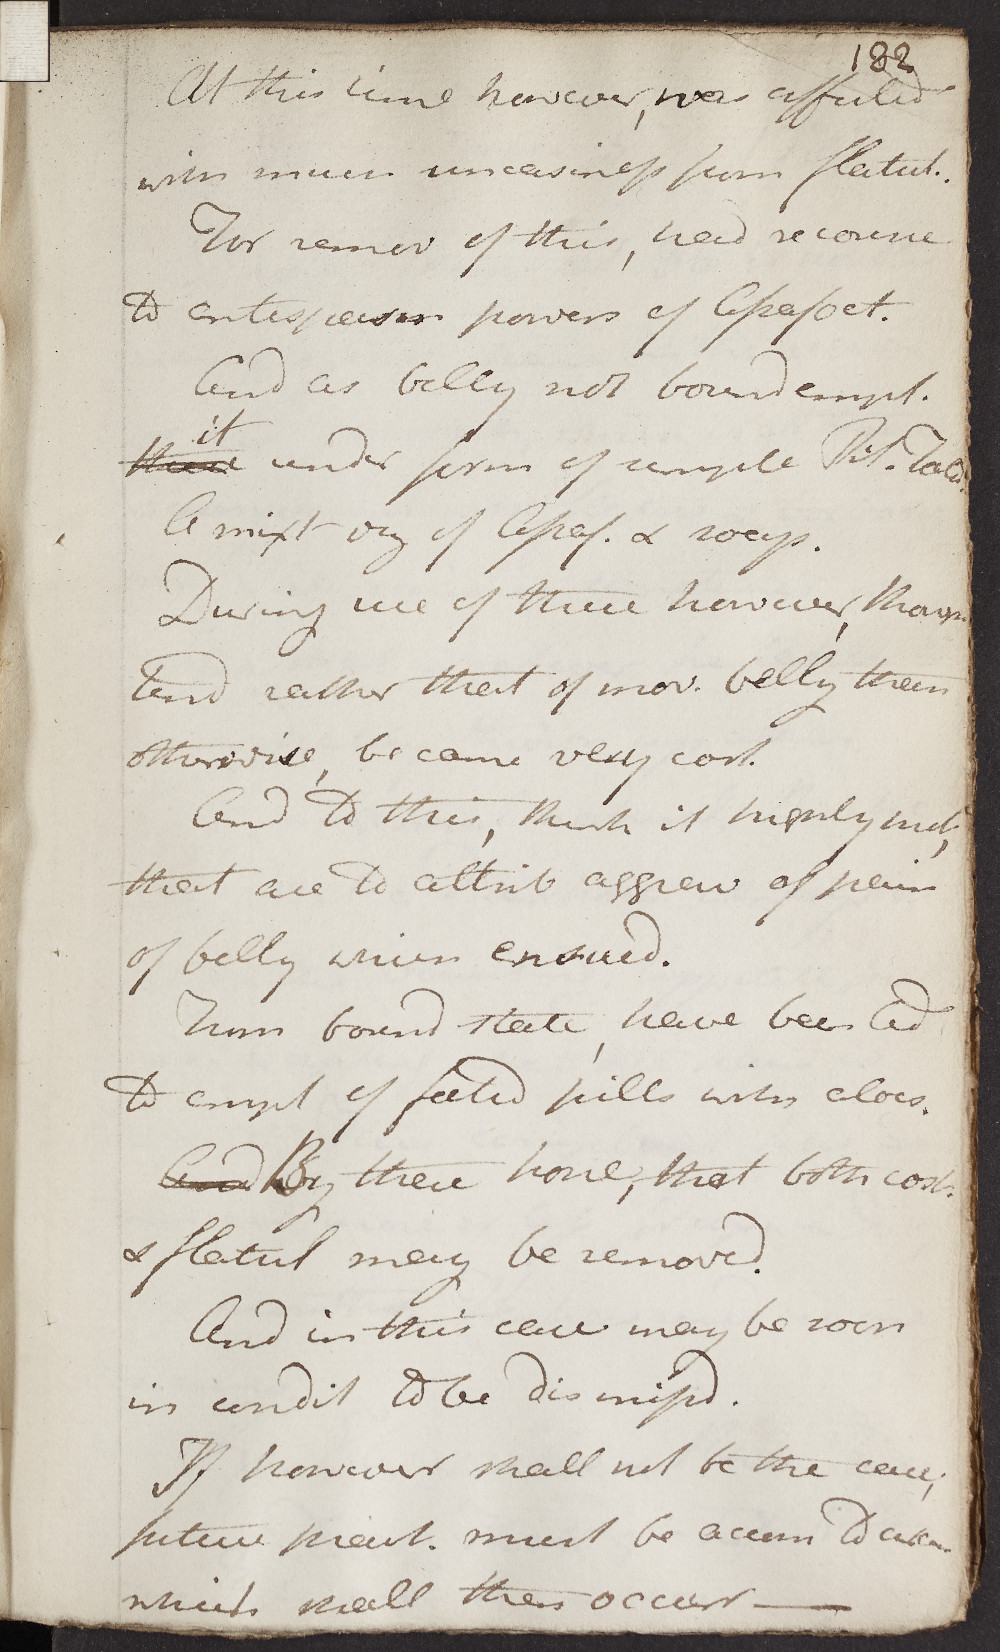 182
At this time however, was affected
with much uneasiness from flatul.
For remov of this, had recourse
to antispasm powers of Asafoet.
And as belly not bound empl.
it
these under form of simple Pil.
A mixt of Asaf. & soap.
During use of these however, tho
tend rather that of mov. belly than
otherwise, became very cost.
And to this, think it highly
that are to attrib aggrav of pain
of belly which ensued.
From bound state, have been led
to empl of foetid pills with aloes.
And By these hope, that both cost.
& flatul may be removed.
And in this case may be soon
in condit to be dismissd.
If however shall not be the case,
future pract. must be accom to
which shall then occur —